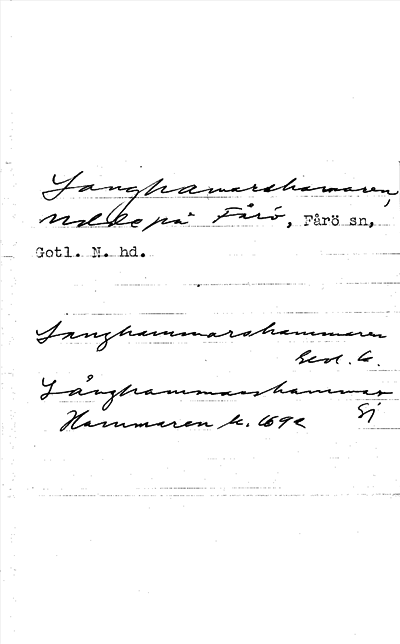 Langhamarshamaren,
udde på Fårö, Fårö sn,
Gotl. N. hd.
Langhammarshammaren
Geol. k.
Långhammarshammar
Hammaren k. 169 Sj